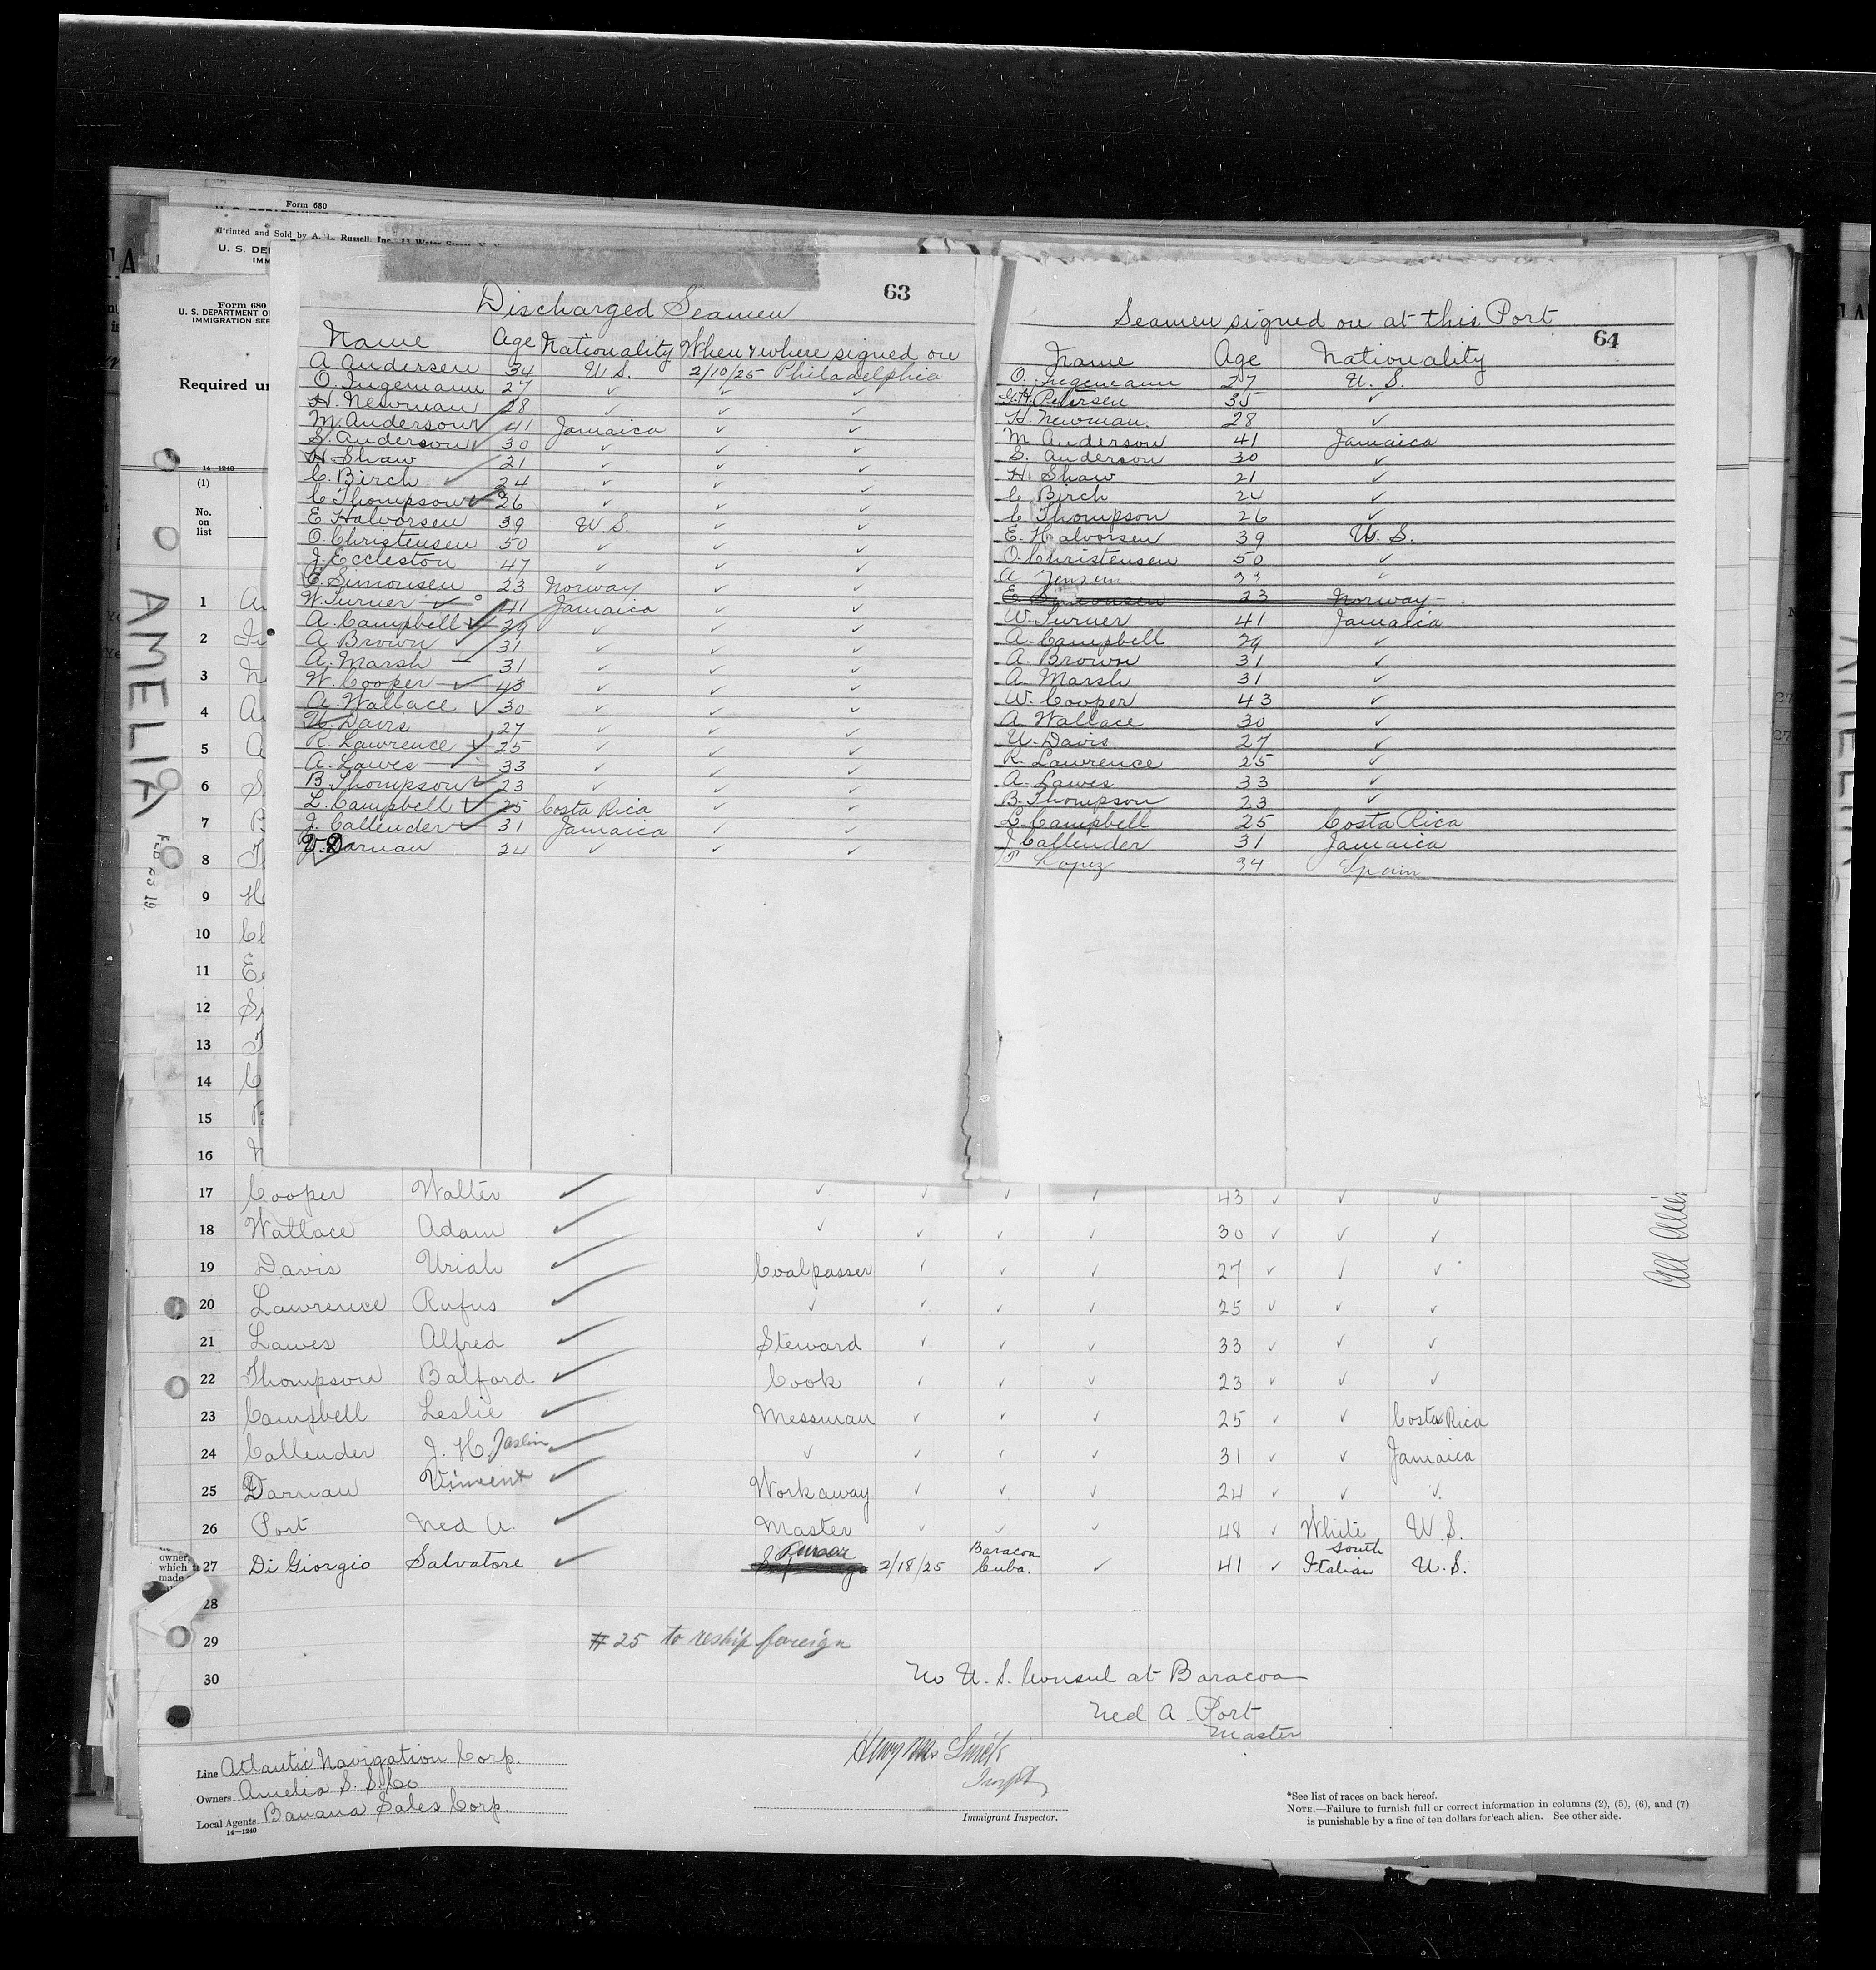 Form 680
Printed and Sold by A. L. Russell, Inc.
U. S. DE
IMM
Form 680
U. S. DEPARTMENT O
IMMIGRATION SER
Required un
14—1240
(1)
No.
on
list
AMELIA
63
Discharged Seamen
Name Age Nationality When & where signed on
A. Andersen 34 U.S. 2/10/25 Philadelphia
O. Ingemann 27 ✓ ✓ ✓
H. Newman 28 ✓ ✓ ✓
M. Anderson 41 Jamaica ✓ ✓
S. Anderson 30 ✓ ✓ ✓
H. Shaw 21 ✓ ✓ ✓
C. Birch 24 ✓ ✓ ✓
C. Thompson 26 ✓ ✓ ✓
E. Halvorsen 39 U.S. ✓ ✓
O. Christensen 50 ✓ ✓ ✓
J. Eccleston 47 ✓ ✓ ✓
E. Simonsen 23 Norway ✓ ✓
W. Turner 41 Jamaica ✓ ✓
A. Campbell 29 ✓ ✓ ✓
A. Brown 31 ✓ ✓ ✓
A. Marsh 31 ✓ ✓ ✓
W. Cooper 43 ✓ ✓ ✓
A. Wallace 30 ✓ ✓ ✓
U. Davis 27 ✓ ✓ ✓
R. Lawrence 25 ✓ ✓ ✓
A. Lawes 33 ✓ ✓ ✓
B. Thompson 23 ✓ ✓ ✓
L. Campbell 25 Costa Rica ✓ ✓
J. Callender 31 Jamaica ✓ ✓
V. Darnan 24 ✓ ✓ ✓
64
Seamen signed on at this Port
Name Age Nationality
O. Ingemann 27 U. S.
G.H. Petersen 35 ✓
H. Newman. 28 ✓
M Anderson 41 Jamaica
S. Anderson 30 ✓
H. Shaw 21 ✓
C Birch 24 ✓
C Thompson 26 ✓
E. Halvorsen 39 U. S.
O. Christensen 50 ✓
A Jensen 33 ✓
E. Simonsen 23 Norway
W. Turner 41 Jamaica
A. Campbell 29 ✓
A. Brown 31 ✓
A Marsh 31 ✓
W. Cooper 43 ✓
A Wallace 30 ✓
U. Davis 27 ✓
R. Lawrence 25 ✓
A. Lawes 33 ✓
B. Thompson 23 ✓
L. Campbell 25 Costa Rica
J Callender 31 Jamaica
Lopez 34 Spain
1
2
3
4
5
6
7
8
9
10
11
12
13
14
15
16
17 Cooper Walter ✓ ✓ ✓ ✓ ✓ 43 ✓ ✓ ✓
18 Wallace Adam ✓ ✓ ✓ ✓ ✓ 30 ✓ ✓ ✓
19 Davis Uriah ✓ Coalpasser ✓ ✓ ✓ 27 ✓ ✓ ✓
20 Lawrence Rufus ✓ ✓ ✓ ✓ ✓ 25 ✓ ✓ ✓
21 Lawes Alfred ✓ Steward ✓ ✓ ✓ 33 ✓ ✓ ✓
22 Thompson Balford ✓ Cook ✓ ✓ ✓ 23 ✓ ✓ ✓
23 Campbell Leslie ✓ Messman ✓ ✓ ✓ 25 ✓ ✓ Costa Rica
24 Callender J. H. ✓ ✓ ✓ ✓ ✓ 31 ✓ ✓ Jamaica
25 Darnan Vincent ✓ Workaway ✓ ✓ ✓ 24 ✓ ✓ ✓
26 Port Ned A. ✓ Master ✓ ✓ ✓ 48 ✓ White U S.
27 Di Giorgio Salvatore ✓ Purser 2/18/25 Baracoa Cuba. ✓ 41 ✓ South Italian U.S.
28
29 #25 to reship foreign
30
No U. S. Consul at Baracoa
Ned A Port
Master
Line Atlantic Navigation Corp.
Owners Amelia S. S. Co
Local Agents Banana Sales Corp.
14—1240
Immigrant Inspector.
*See list of races on back hereof.
NOTE.—Failure to furnish full or correct information in columns (2), (5), (6), and (7)
is punishable by a fine of ten dollars for each alien. See other side.